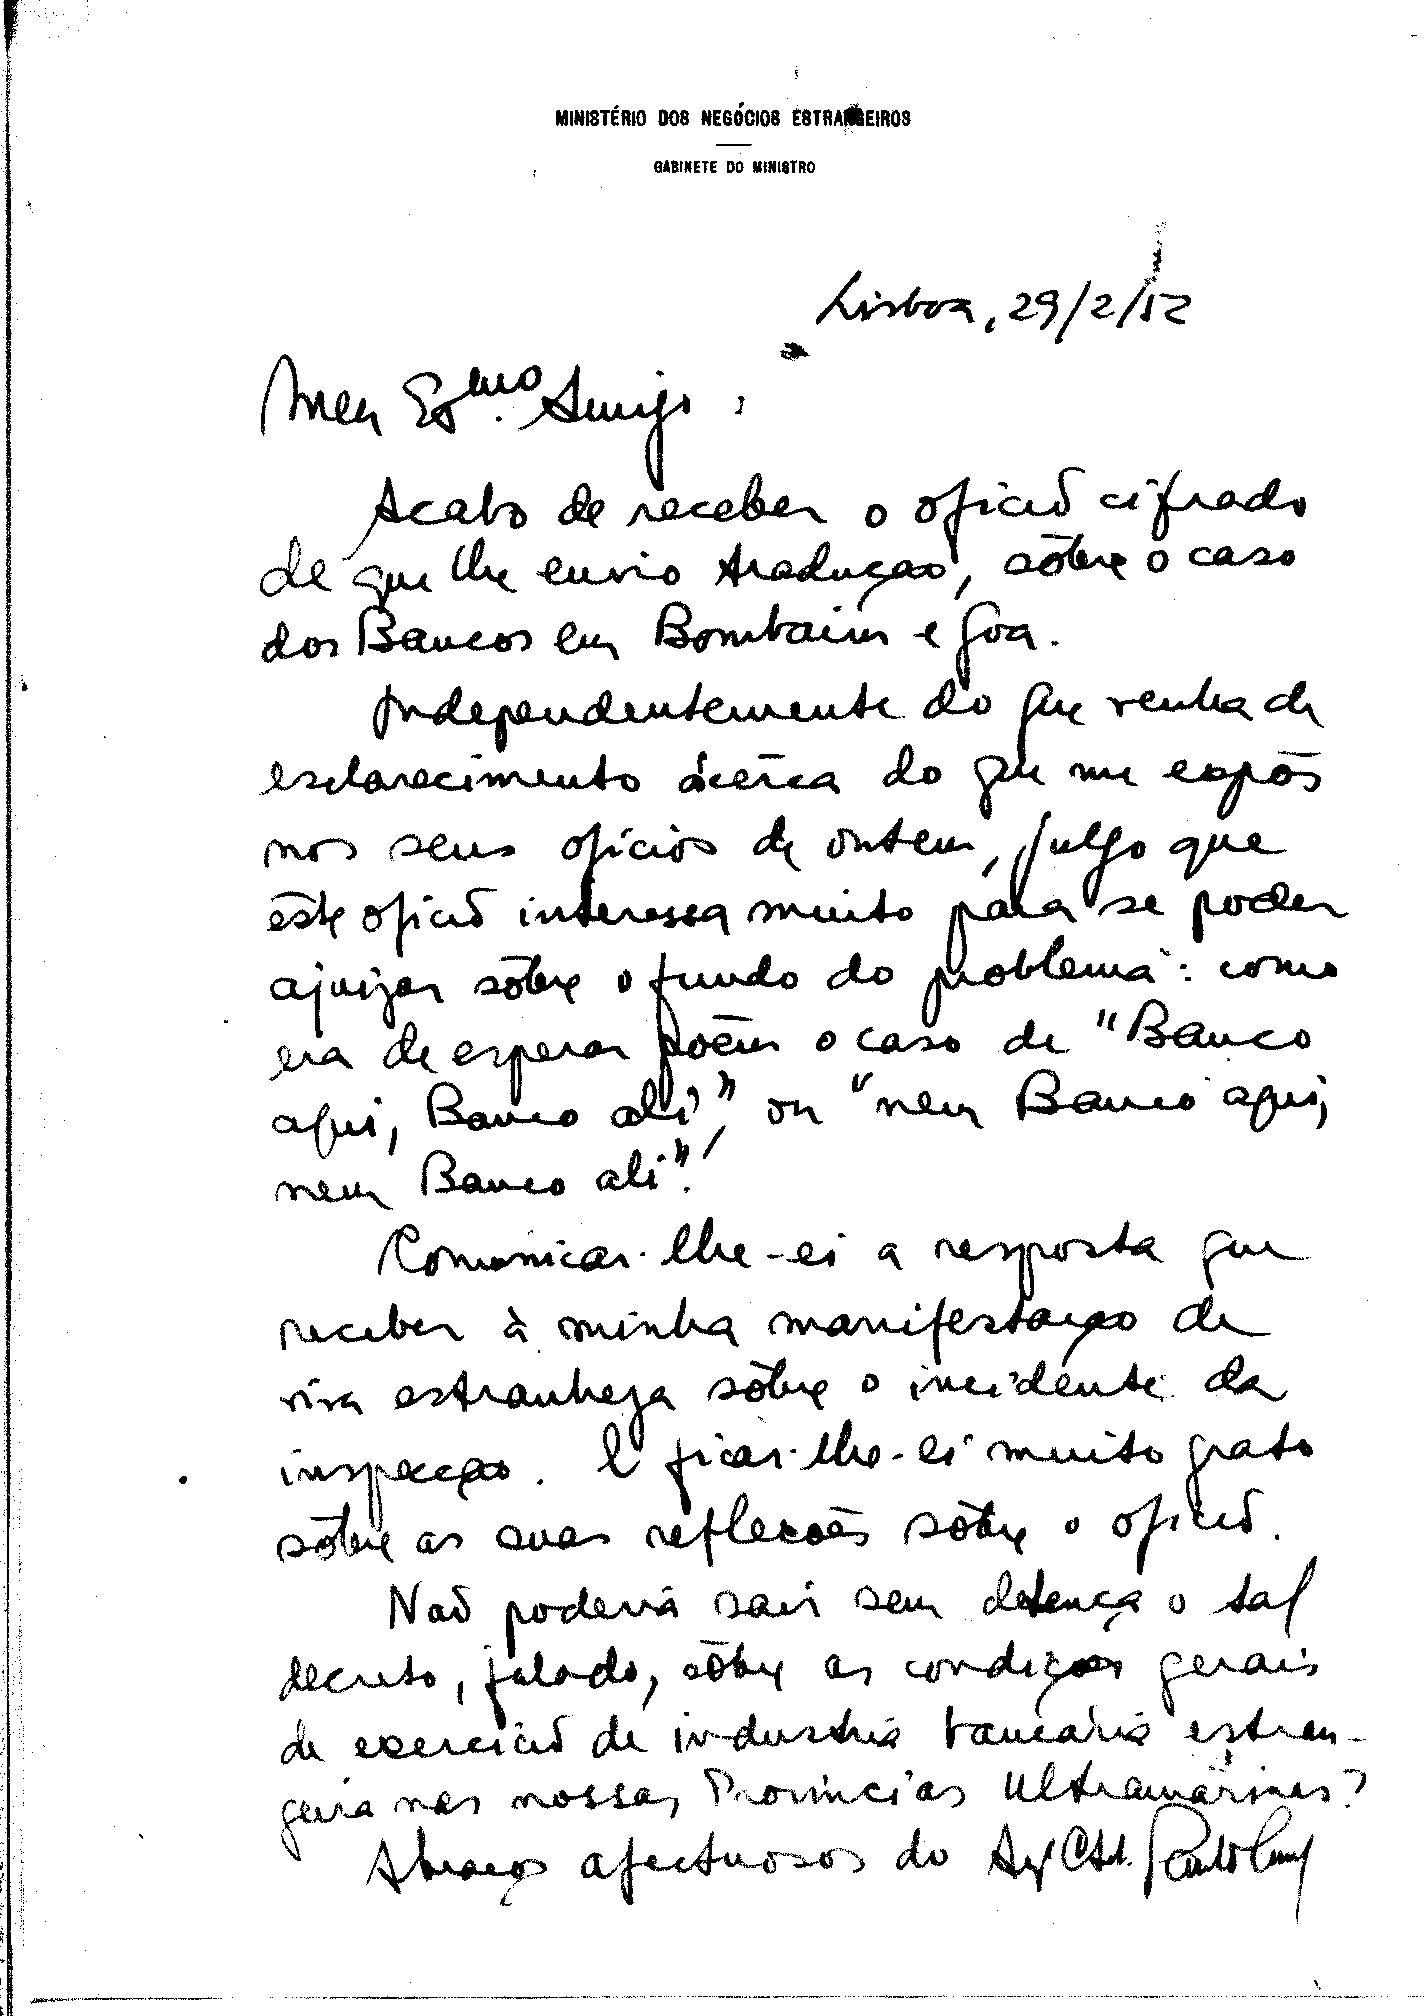 MINISTÉRIO DOS NEGÓCIOS ESTRANGEIROS
GABINETE DO MINISTRO
Lisboa, 29/2/52
Meu Exmo. Amigo,
Acabo de receber o ofício cifrado
de que lhe envio tradução, sôbre o caso
dos Bancos em Bombaim e Goa.
Independentemente do que venha de
esclarecimento àcêrca do que me expôs
nos seus ofícios de ontem, julgo que
êste ofício interessa muito para se poder
ajuizar sôbre o fundo do problema: como
era de esperar põem o caso de "Banco
aqui, Banco ali", ou "nem Banco aqui,
nem Banco ali".
Comunicar-lhe-ei a resposta que
receber à minha manifestação de
viva estranheza sôbre o incidente da
inspecção. E ficar-lhe-ei muito grato
sôbre as suas reflexões sôbre o ofício.
Não poderia sair sem detença o tal
decreto, falado, sôbre as condições gerais
de exercício de industria bancária estran-
geira nas nossas Províncias Ultramarinas?
Abraços afectuosos do